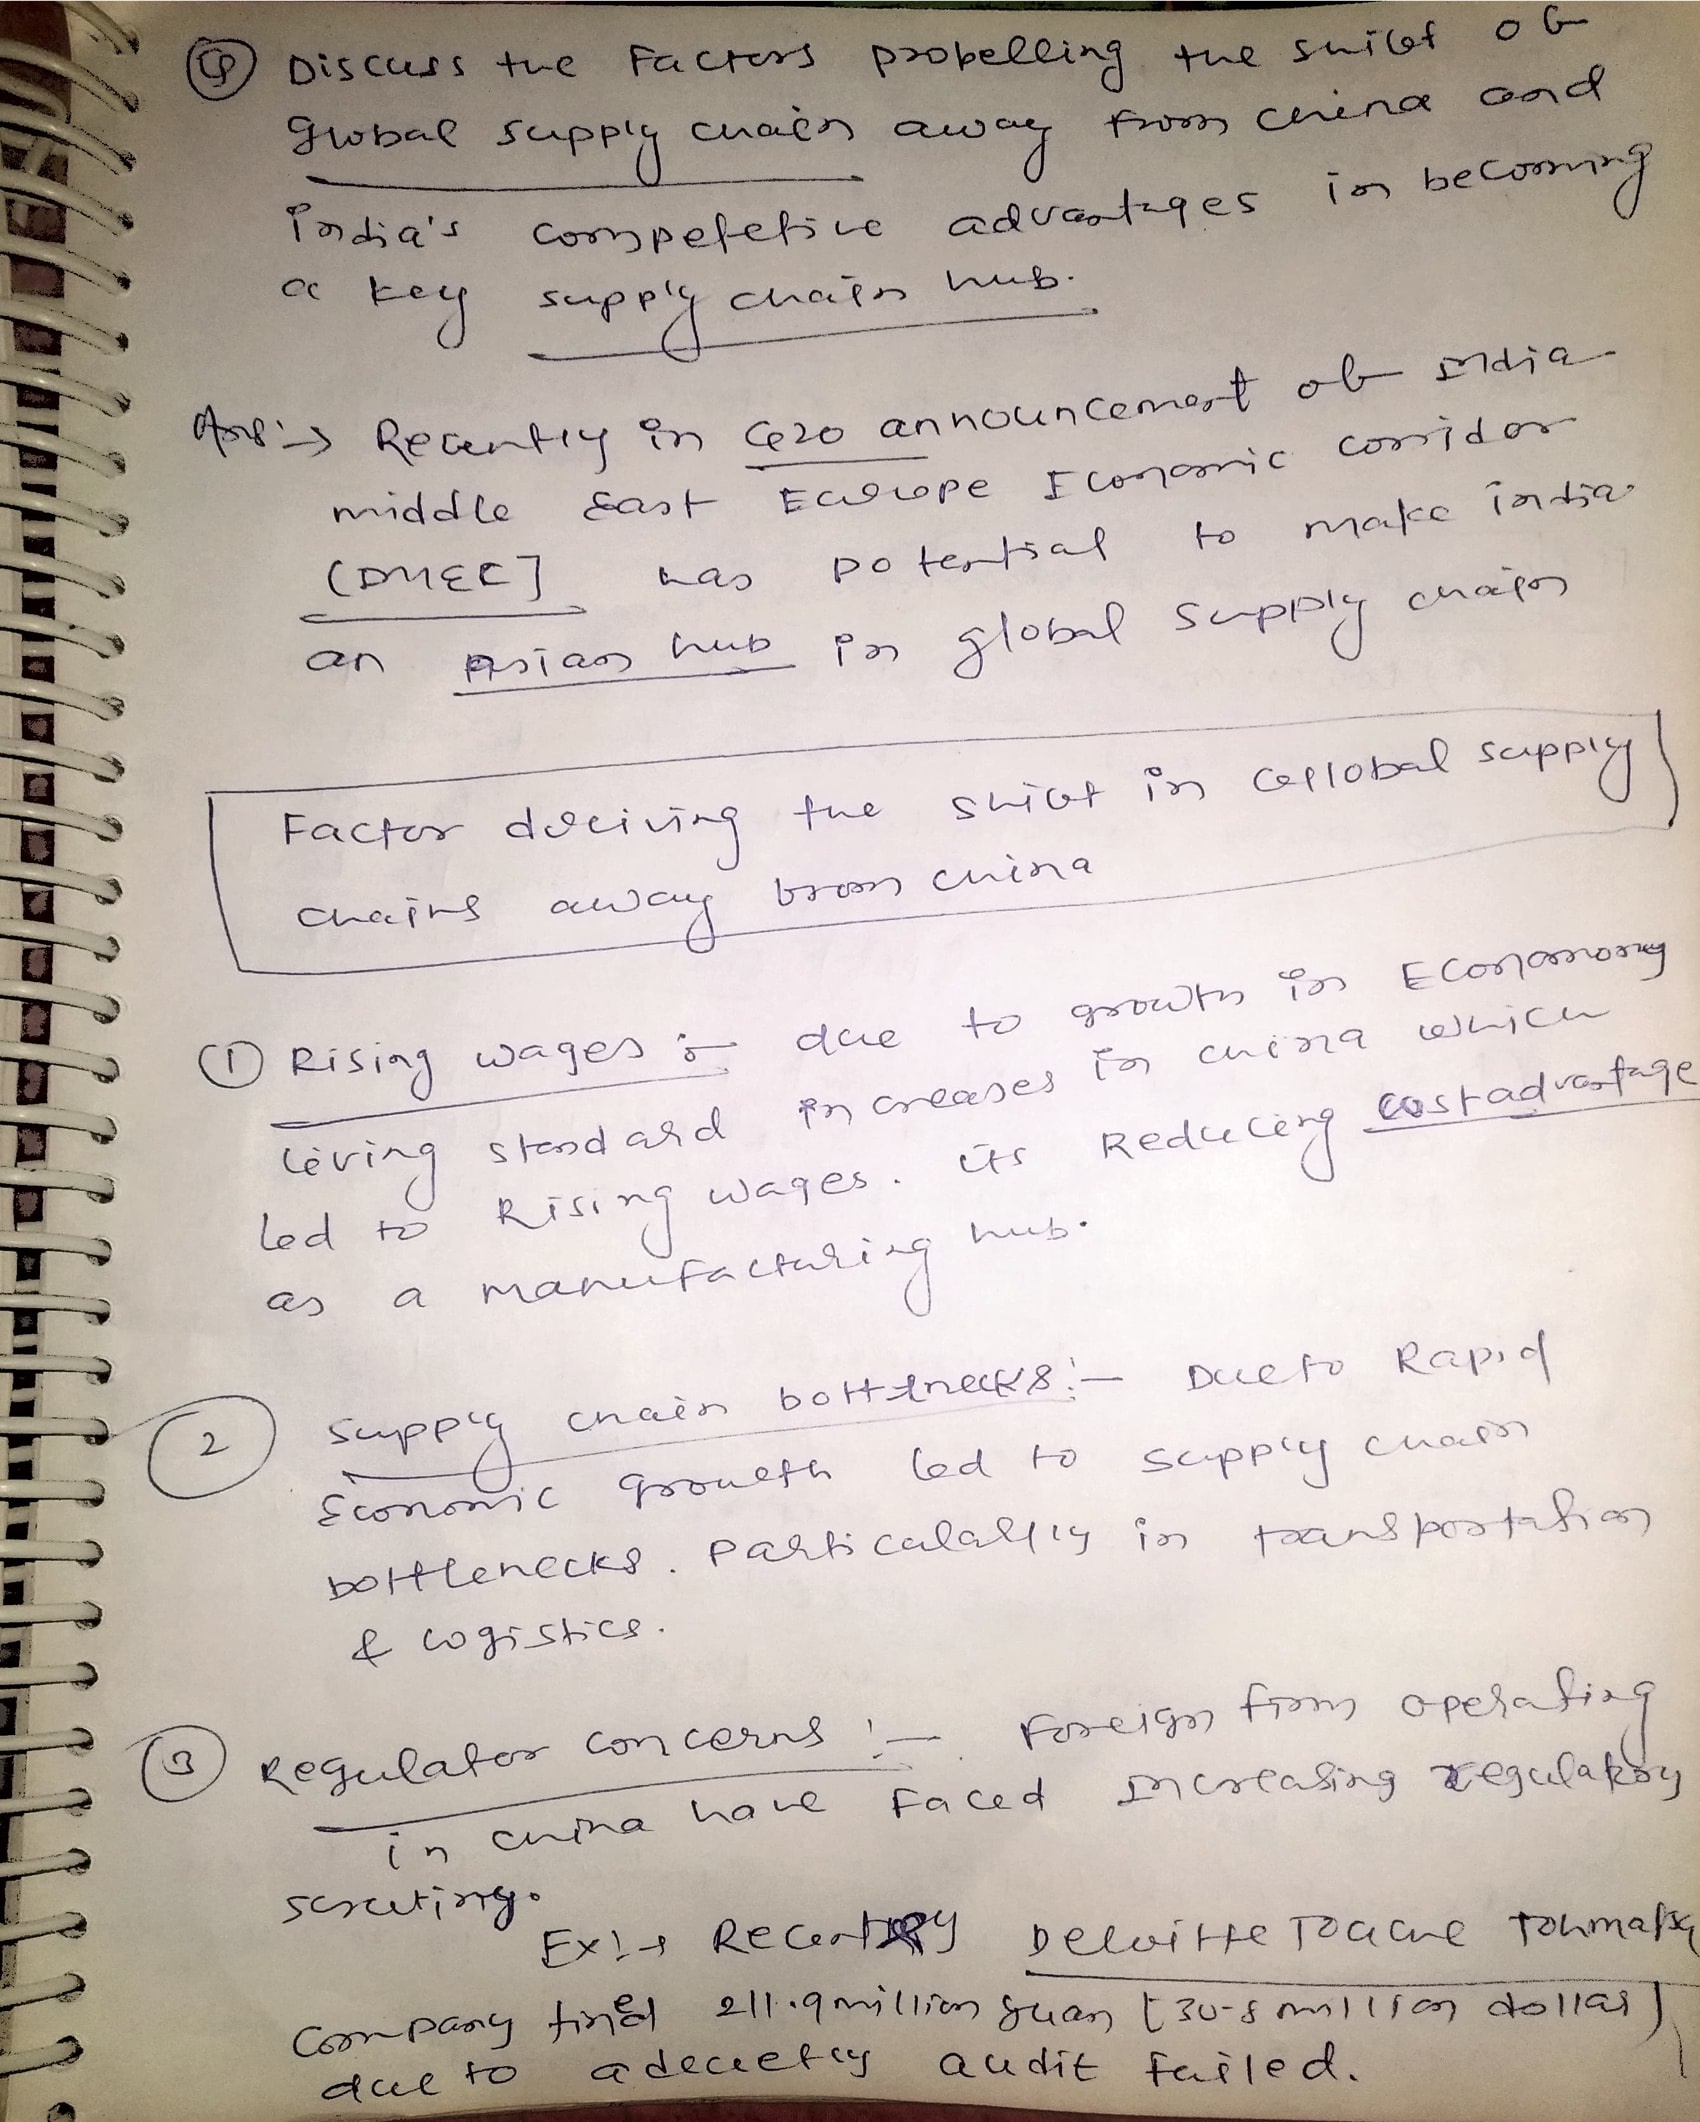 Q Discuss the Factors propelling the shift of
global supply chain away from china and
india's competetive advantages in becoming
a key supply chain hub.
Ans:→ Recently in G20 announcement of India
middle East Europe Economic corridor
(IMEC] has potential to make india
an Asian hub in global supply chain
Factor driving the shift in Global supply
chains away from china
① Rising wages :- due to growth in Economy
living standard increases in china which
led to Rising wages. its Reducing cost advantage
as a manufacturing hub.
2 supply chain bottlnecks :- Due to Rapid
Economic growth led to supply chain
bottlenecks. Particularly in transportation
& logistics.
③ Regulator concerns :- Foreign firm operating
in china have faced increasing regulatory
scrutiny.
Ex:→ Recently Deloitte Touche Tohmatsu
Company fined 211.9 million yuan [30.8 million dollar]
due to audit failed.